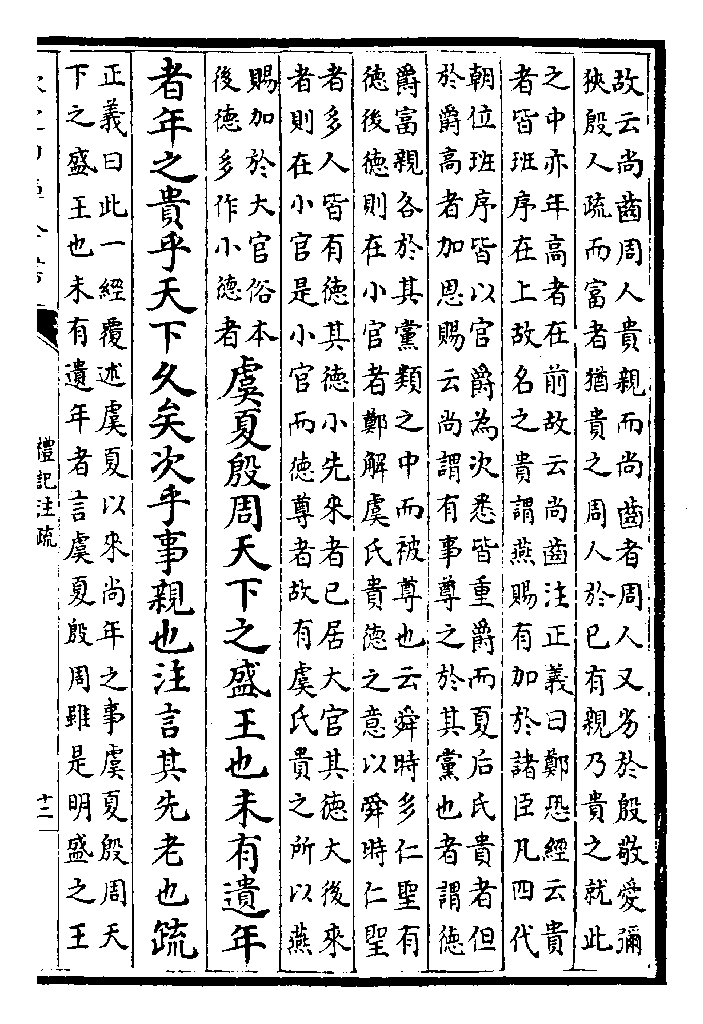 故云尚齒周人貴親而尚齒者周人又劣於殷敬愛彌
狹殷人疏而富者猶貴之周人於已有親乃貴之就此
之中亦年高者在前故云尚齒注正義曰鄭恐經云貴
者皆班序在上故名之貴謂燕賜有加於諸臣凡四代
朝位班序皆以官爵為次悉皆重爵而夏后氏貴者但
於爵高者加恩賜云尚謂有事尊之於其黨也者謂徳
爵富親各於其黨類之中而被尊也云舜時多仁聖有
徳後徳則在小官者鄭解虞氏貴徳之意以舜時仁聖
者多人皆有徳其徳小先來者已居大官其徳大後來
者則在小官是小官而徳尊者故有虞氏貴之所以燕
賜加於大官俗本
後徳多作小徳者
虞夏殷周天下之盛王也未有遺年
者年之貴乎天下久矣次乎事親也注言其先老也疏
正義曰此一經覆述虞夏以來尚年之事虞夏殷周天
下之盛王也未有遺年者言虞夏殷周雖是明盛之王
禮記注疏
十二